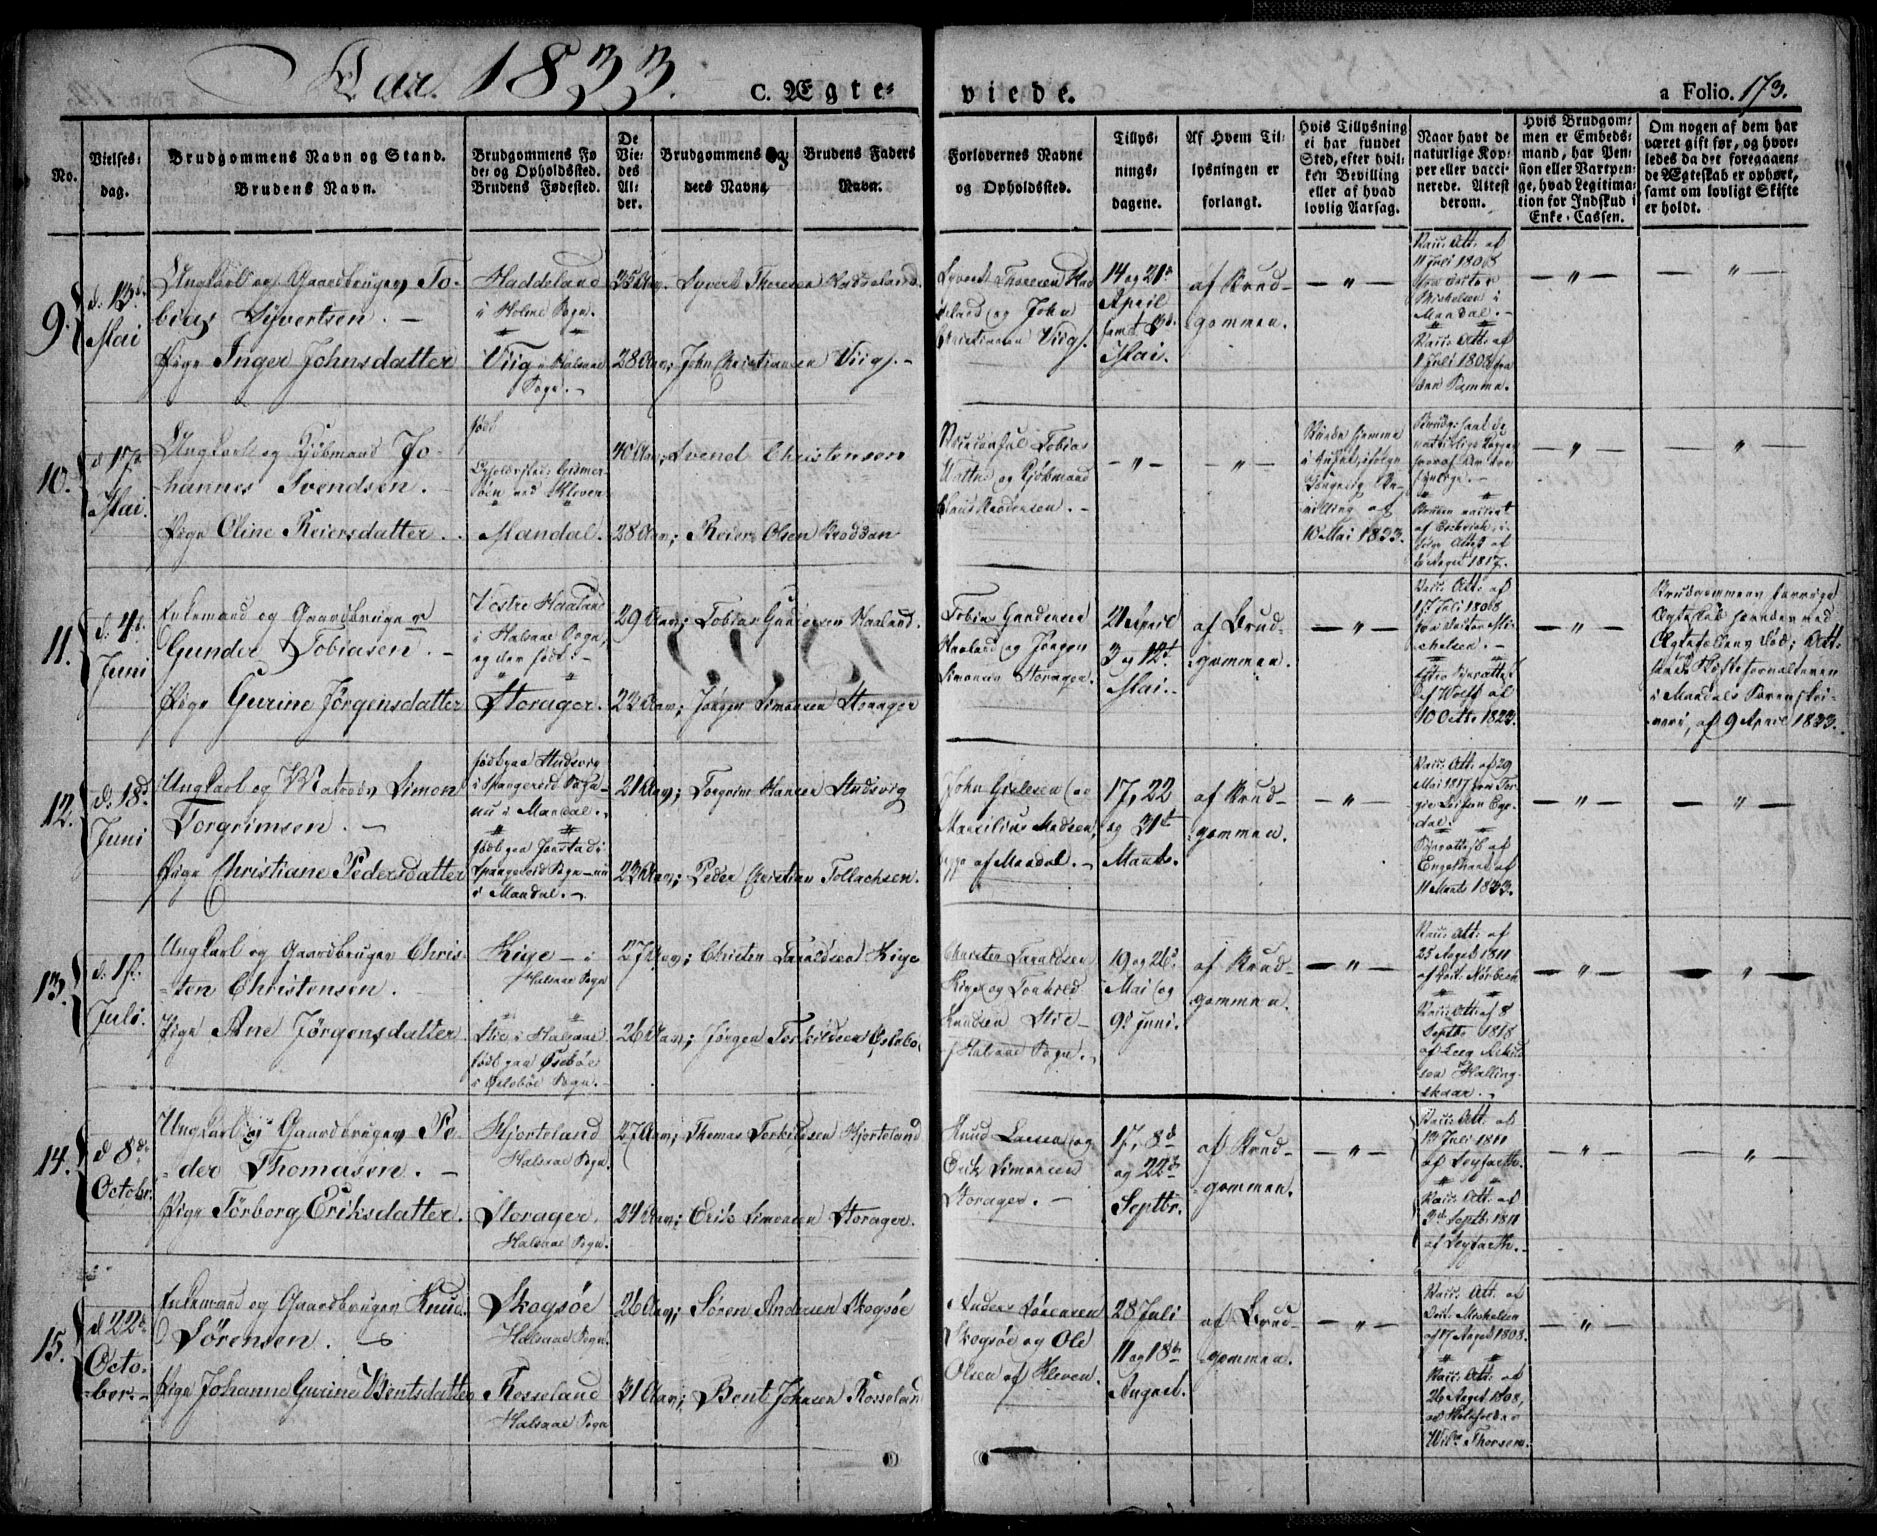 Aar 1833.
C. Ægte-
viede.
a Folio. 173.
No.
Vielses-
dag.
Brudgommens Navn og Stand.
Brudens Navn.
Brudgommens Fø
de- og Opholdssted.
Brudens Fødested.
De
Vie-
des
Al-
der.
Brudgommens og Brudens Faders
Navn.
Forlovernes Navne
og Opholdssted.
Tillys-
nings-
dagene.
Af Hvem Til-
lysningen er
forlangt.
Hvis Tillysning
ei har fundet
Sted, efter hvil-
ken Bevilling
eller af hvad
lovlig Aarsag.
Naar havt de
naturlige Kop-
per eller vacci-
nerede. Attest
derom.
Hvis Brudgom-
men er Embeds-
mand, har Pen-
sion eller Vartpen-
ge, hvad Legitima-
tion for Indskud i
Enke-Cassen.
Om nogen af dem har
været gift før, og hvor-
ledes da det foregaaen-
de Ægteskab er ophørt,
samt om lovligt Skifte
er holdt.
9.
d. 13d.
Mai
Ungkarl og Gaardbruger To-
bias Syvertsen. -
Pige Inger Johnsdatter
Haddeland
i Holme Sogn.
Viig i Halsaae
Sogn. -
35 Aar. Syvert Thoresen Haddeland
28 Aar; John Christiansen Viig. -
Syvert Thoresen Had
deland og John
Christiansen Viig.
14 og 21d
April
samt
Mai.
af Brud-
gommen.
- " -
Vacc. Att. af
11 Juli 1808
fra
Michelsen i
Mandal. -
Vacc. Att. af
1 Juli 1808 fra
den Samme.
- " -
- " -
10.
d 17d
Mai.
Ungkarl og Kjøbmand Jo-
hannes Svendsen. -
Pige Oline Reiersdatter.
født
Opholdssted:
ved Kleven
Mandal.
40 Aar; Svend Christensen
28 Aar; Reier Olsen
Tobias
og Kjøbmand
- " -
- " -
Viede hjemme
i Huset, ifølge
Kongelig Be-
villing af
10 Mai 1833.
af
1817.
- " -
- " -
11.
d. 4d.
Juni
Enkemand og Gaardbruger
Gunder Tobiasen. -
Pige Gurine Jørgensdatter
Vestre Haaland
i Halsaae Sogn,
og der født. -
Storager.
29 Aar; Tobias Gundersen Haaland.
23 Aar; Jørgen Simonsen Storager
Tobias Gundersen
Haaland og Jørgen
Simonsen Storager.
21 April
3 og 12d.
Mai. -
af Brud-
gommen.
- " -
Vacc. Att. af
17 Juli 1808
fra Mi-
chelsen. -
af Wolff al
10 Octb. 1823.
- " -
Brudgommens forrige
Ægteskab hævet ved
Ægtefællens Død; Att.
fra Skifteforvalteren
i Mandals Sorenskri-
veri, af 9 April 1833.
12.
d. 18d
Juni
Ungkarl og Matros Simon
Torgrimsen. -
Pige Christiane Pedersdatter
født paa Stusvig
i Spangereid Sogn
nu i Mandal. -
født paa Jaastad i
Spangereid Sogn - nu
i Mandal. -
21 Aar; Torgrim Hansen Stusvig
23 Aar; Peder Christian Tollachsen.
John Gielesen og
Marcilius Madsen,
begge af Mandal. -
17, 22
og 31d
Marts.
af Brud-
gommen.
- " -
Vacc. Att. af 29
Mai 1817 fra
af
Engelhard af
11 Marts 1833.
- " -
- " -
13.
d. 1st.
Juli.
Ungkarl og Gaardbruger Chris-
-ten Christensen. -
Pige Ane Jørgensdatter
Kige - i
Halsaae Sogn
Stie i Halsaae
født paa Osebøe
i Øslebøe Sogn. -
27 Aar; Christen Taraldsen Kige
26 Aar; Jørgen Terkildsen
Christen Taraldsen
Kige og Tarkild
Knudsen Stie
i Halsaae Sogn. -
19 og 26d
Mai og
9d. Juni.
af Brud-
gommen.
- " -
Vacc. Att. af
25 Augst 1811
Vacc. Att. af 8
Septbr 1818
af
Halling
skaar. -
- " -
- " -
14.
d 8de
Octobr.
Ungkarl og Gaardbruger Pe-
-der Thomasen. -
Pige Törborg Eriksdatter.
Hjorteland
Halsaae Sogn.
Storager.
Halsaae Sogn.
27 Aar; Thomas Terkildsen Hjorteland
24 Aar; Erik Simonsen Storager.
Knud og
Erik Simonsen
Storager. -
1st, 8d
og 22d
Septbr.
af Brud-
gommen.
- " -
Vacc. Att. af
13 Juli 1811
af Seyfarth.
Vacc. Att. af
3d Septbr 1811
af Seyfarth. -
- " -
- " -
15.
d 22d.
Octo-
-ber. -
Enkemand og Gaardbruger Knud
Sörensen. -
Pige Johanne Gurine Bentsdatter
Skogsøe
Halsaae Sogn.
Rosseland
Halsaae Sogn
26 Aar; Sören Andersen Skogsøe
31 Aar; Bent Johnsen Rosseland
Anders Sörensen
Skogsøe og Ole
Olsen af Kleven.
28 Juli
11 og 18de
August.
af Brud-
gommen.
- " -
Vacc. Att. af
Michelsen
af 17 Augst 1808.
Vacc. Att. af
26 Augst 1808,
Thorsen.
- " -